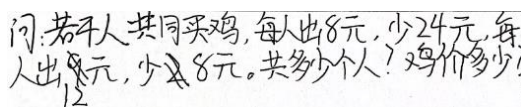 问:若干人共同买鸡,每人出8元,少24元,每
人出元,少8元。共多少个人?鸡价多少!
12